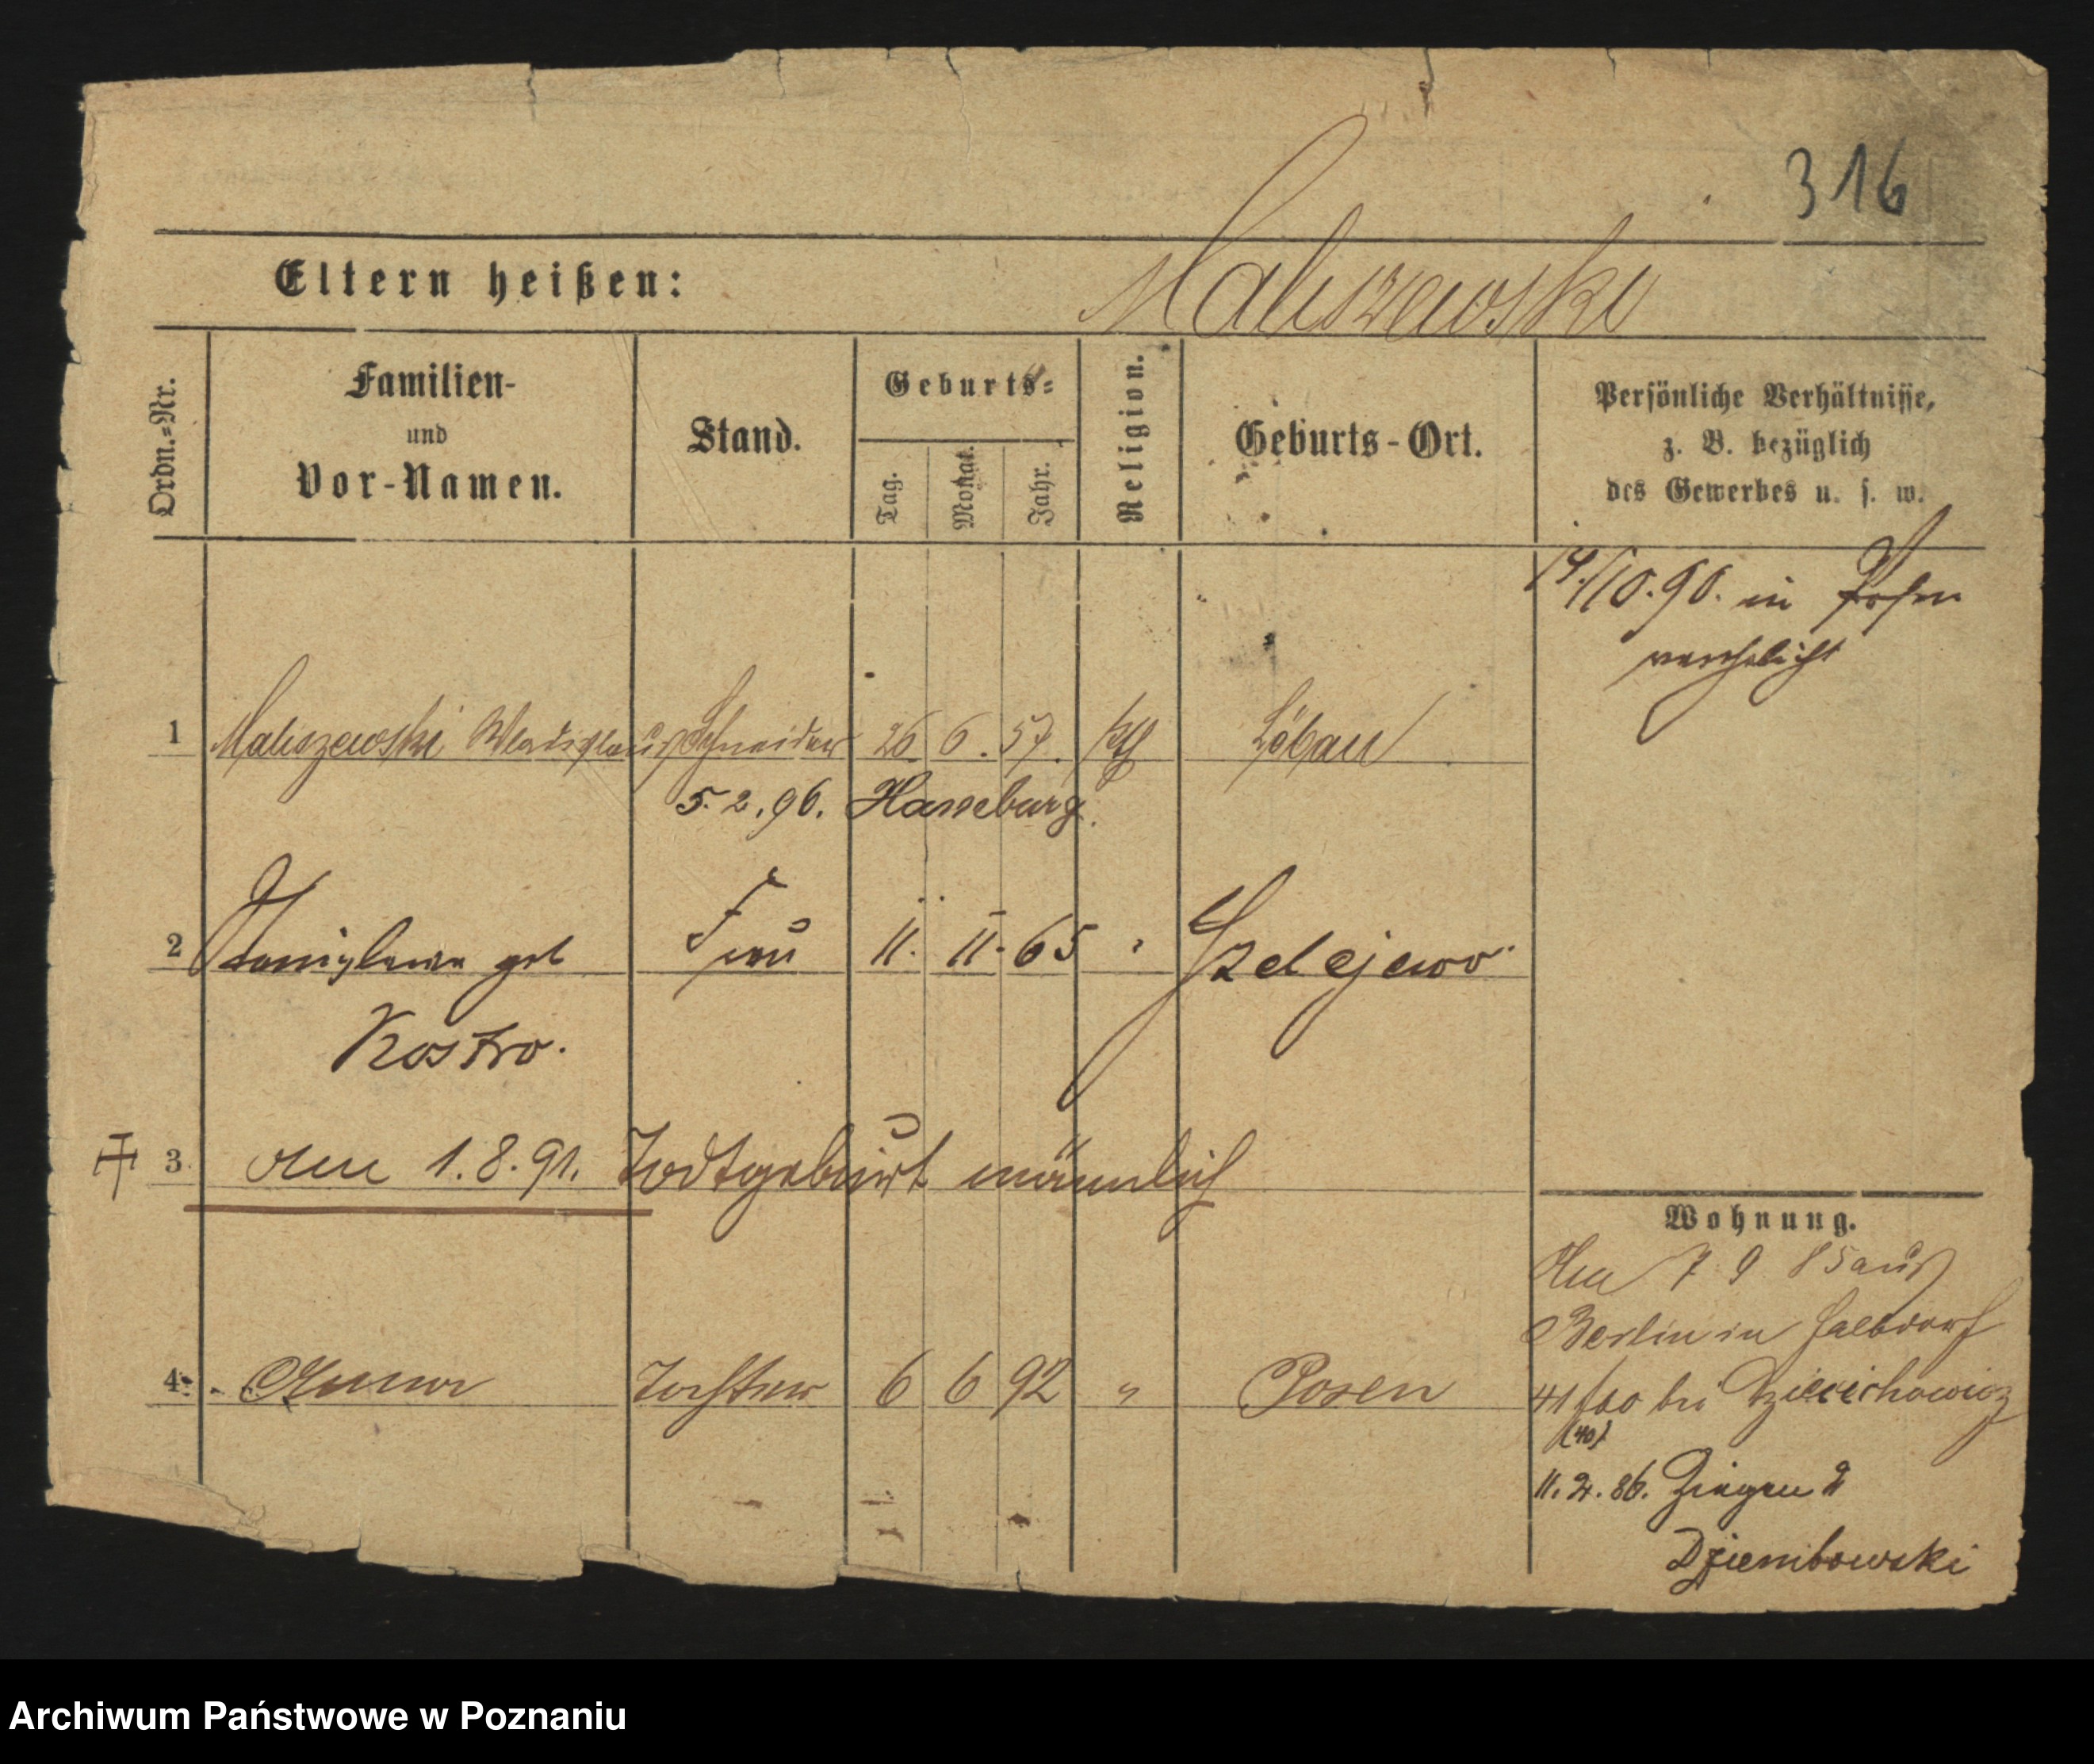 316
Eltern heißen: Maliszewski
Ordn.-Nr.
Familien-
und
Vor-Namen.
Stand.
Geburts-
Tag. Monat. Jahr.
Religion.
Geburts-Ort.
Persönliche Verhältnisse,
z. B. bezüglich
des Gewerbes u. s. w.
14./10.90. in Posen
verehelicht
1 Maliszewski Wladyslaus Schneider 26 6. 57. kth Löbau
5.2.96. Hasseburg.
2 Stanislawa geb Frau 11. 11. 65 " Szelejewo.
Kostro.
3. den 1.8.91. Todtgeburt männlich
4. Anna Tochter 6 6 92 " Posen
Wohnung.
Am 7 9 85 aus
Berlin in Halbdorf
bei
(40)
11. 2. 86. Ziegen 2
Dziembowski
Archiwum Państwowe w Poznaniu